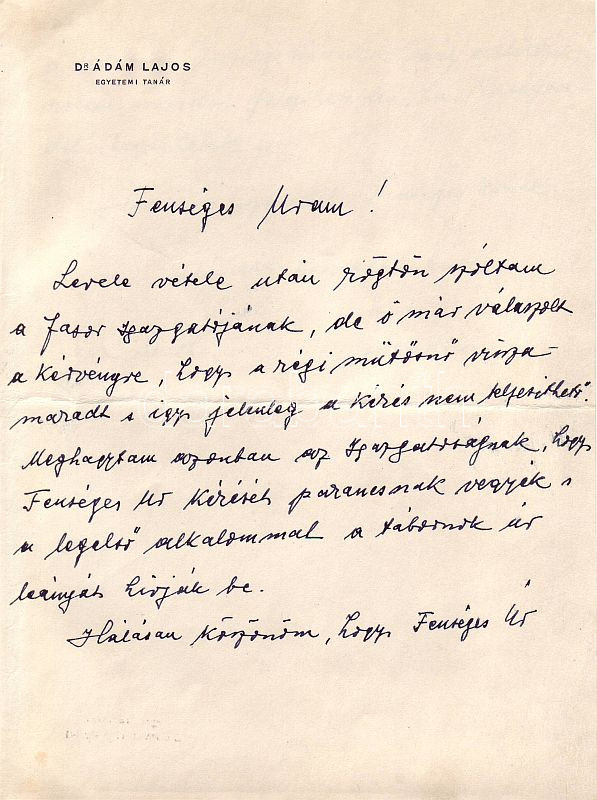 Dr ÁDÁM LAJOS
EGYETEMI TANÁR
Fenséges Uram!
Levele vétele után rögtön szóltam
a Fasor Igazgatójának, de ő már válaszolt
a kérvényre, hogy a régi műtősnő vissza-
maradt s így jelenleg a kérés nem teljesíthető.
Meghagytam azonban az Igazgatóságnak, hogy
Fenséges Úr kérését parancsnak vegyék s
a legelső alkalommal a tábornok úr
leányát hívják be.
Hálásan köszönöm, hogy Fenséges Úr